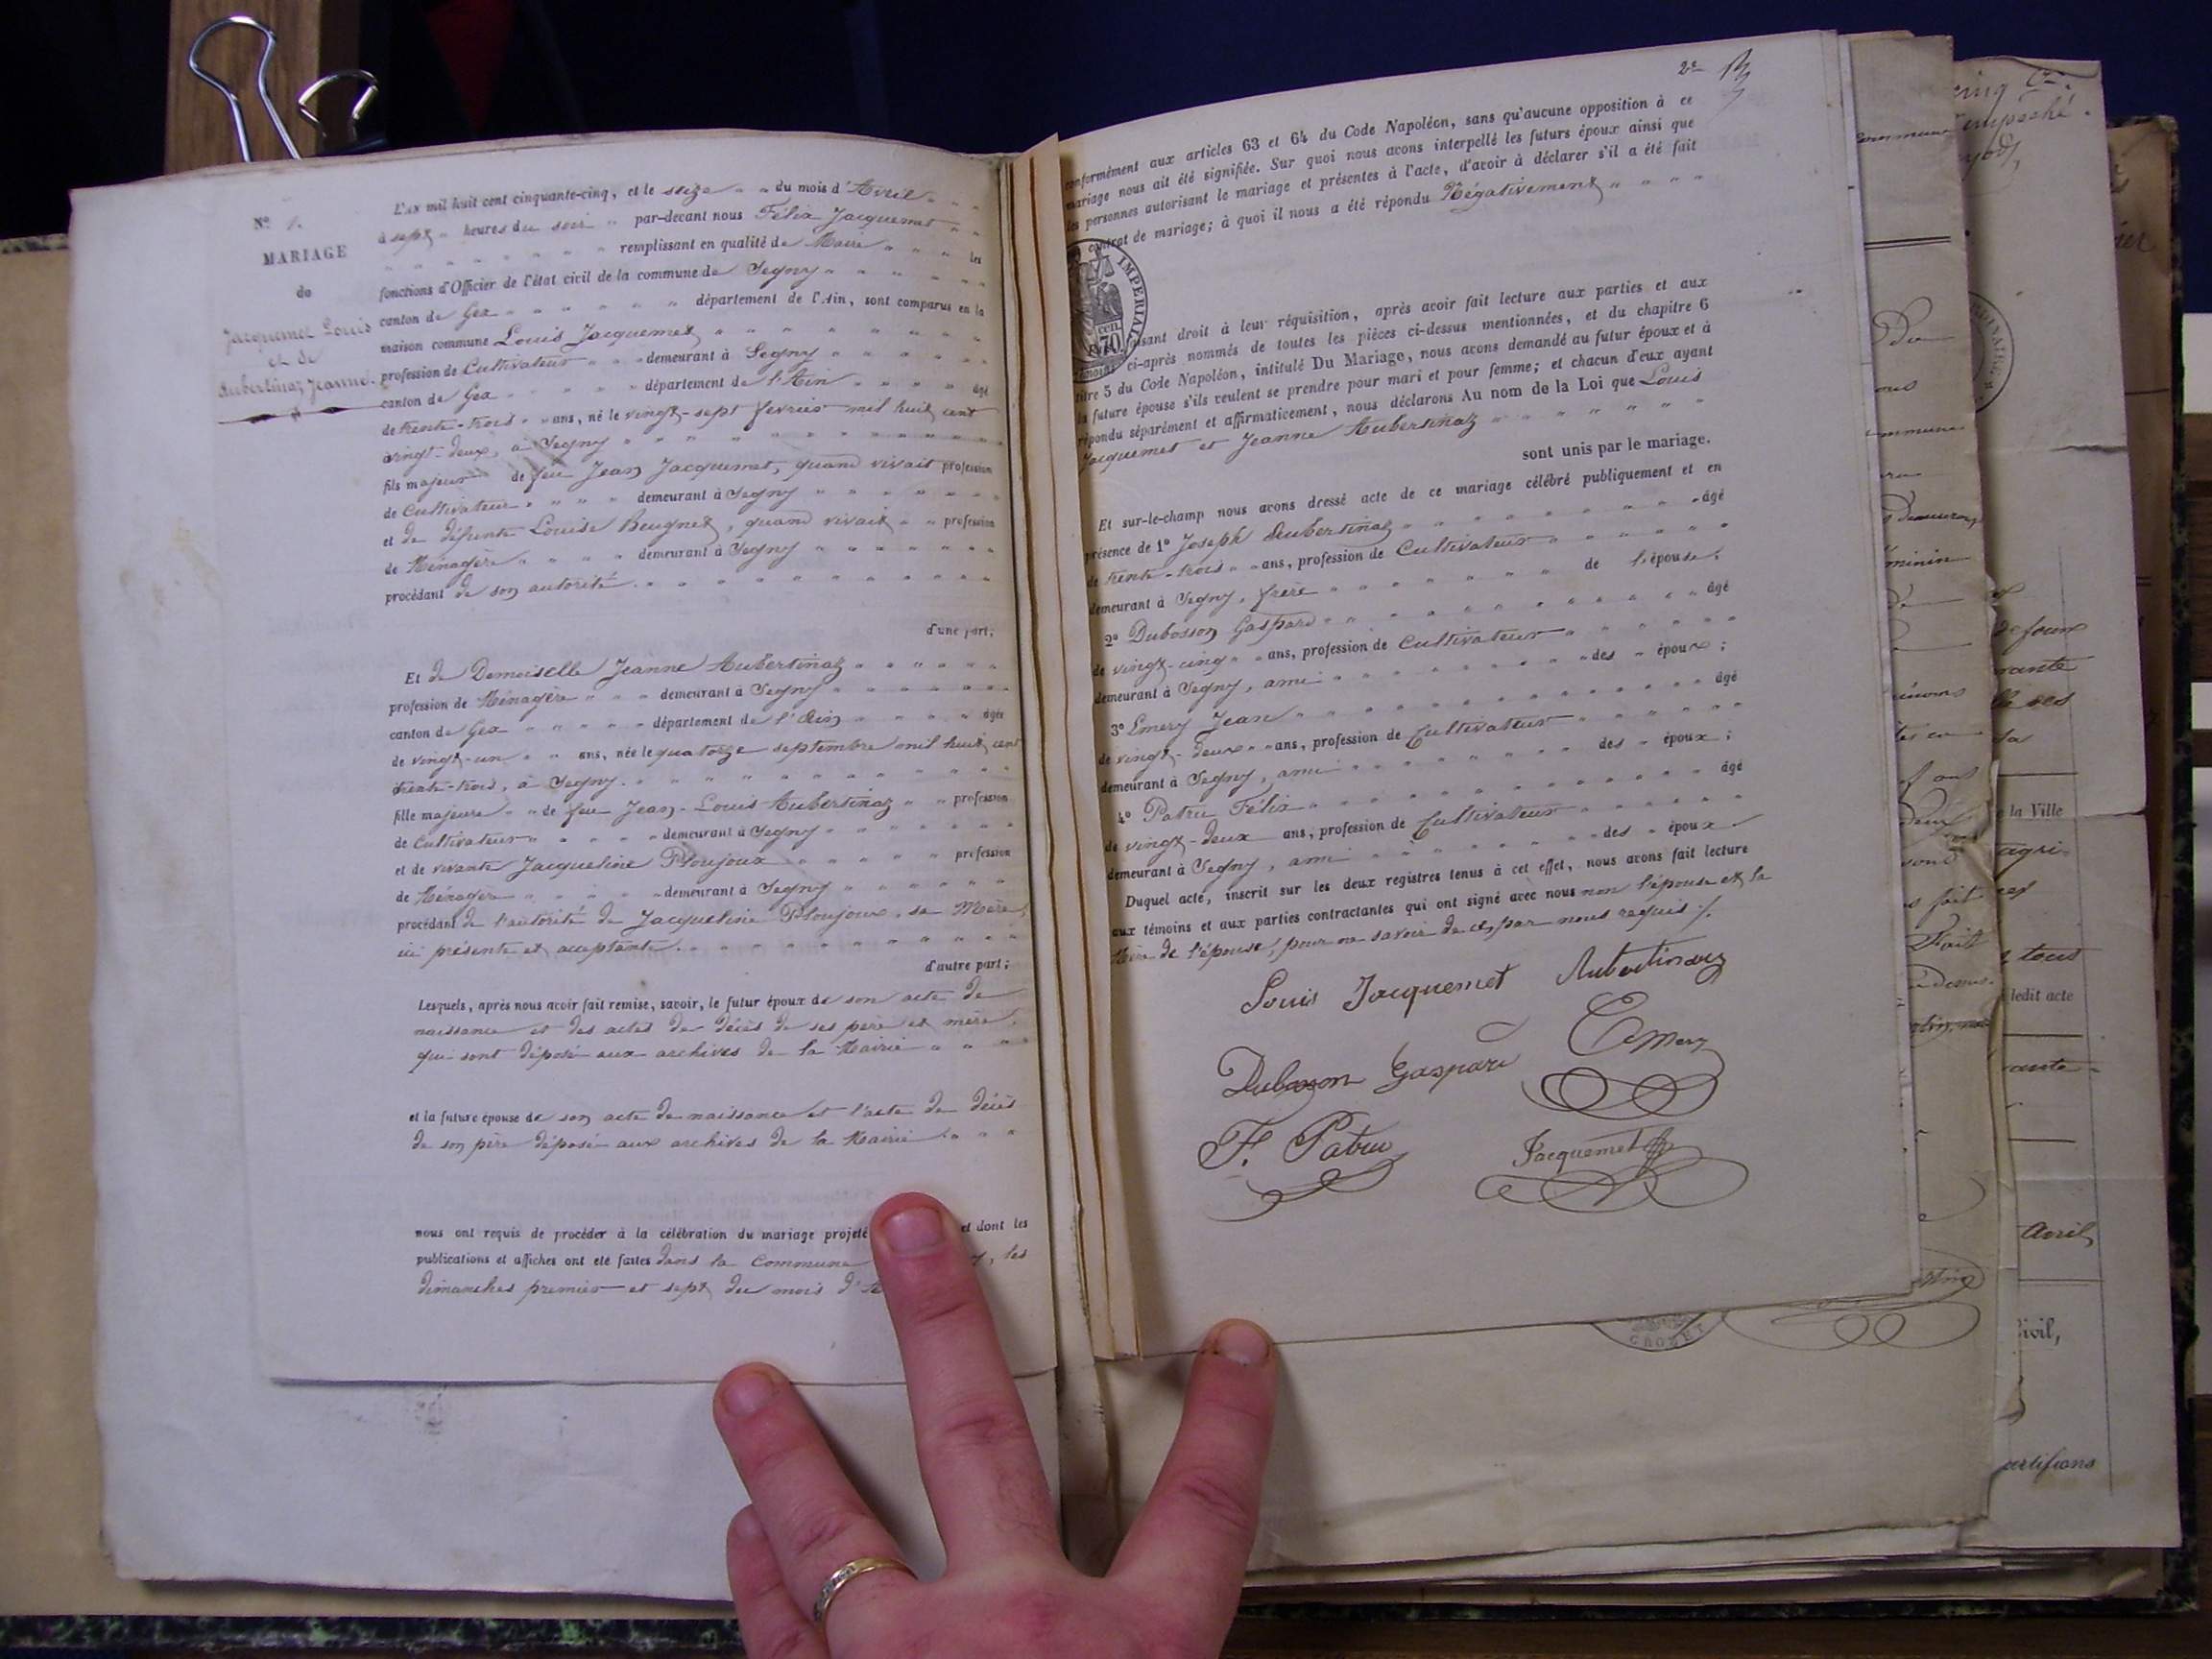 N.º 1.
MARIAGE
de
Jacquemet Louis
et de
Aubertinaz Jeanne.
L'AN mil huit cent cinquante-cinq, et le seize " " du mois d'Avril " " "
à sept " heures du soir " par-devant nous Félix Jacquemet " "
" " " " " " " remplissant en qualité de Maire " " " les
fonctions d'Officier de l'état civil de la commune de Segny " " " " "
canton de Gex " " " " " département de l'Ain, sont comparus en la
maison commune Louis Jacquemet " " " " " " " "
profession de Cultivateur " " " demeurant à Segny " " " " " "
canton de Gex " " " " département de l'Ain " " " " âgé
de trente-trois " " ans, né le vingt-sept février mil huit cent
vingt-deux, à Segny " " " " " " " " " " "
fils majeur de feu Jean Jacquemet, quand vivait profession
de Cultivateur " " " " demeurant à Segny " " " " " " "
et de défunte Louise Beugnet, quand vivait " " profession
de Ménagère " " " " demeurant à Segny " " " " " " "
procédant de son autorité. " " " " " " " " " " "
d'une part;
Et de Demoiselle Jeanne Aubertinaz " " " " " "
profession de Ménagère " " " demeurant à Segny " " " " " " "
canton de Gex " " " " " département de l'Ain " " " " âgée
de vingt-un " " ans, née le quatorze septembre mil huit cent
trente-trois, à Segny. " " " " " " " " " " "
fille majeure " " de feu Jean-Louis Aubertinaz " " profession
de Cultivateur " " " " demeurant à Segny " " " " " " "
et de vivante Jacqueline Ploujoux " " " " " profession
de Ménagère " " " " " demeurant à Segny " " " " " "
procédant de l'autorité de Jacqueline Ploujoux, sa Mère,
ici présente et acceptante. " " " " " " " " " "
d'autre part;
Lesquels, après nous avoir fait remise, savoir, le futur époux de son acte de
naissance et des actes de décès de ses père et mère,
qui sont déposés aux archives de la Mairie " " " "
et la future épouse de son acte de naissance et l'acte de décès
de son père déposés aux archives de la Mairie. " " "
nous ont requis de procéder à la célébration du mariage projeté et dont les
publications et affiches ont été faites dans la Commune les
dimanches premier et sept du mois d'
2e
conformément aux articles 63 et 64 du Code Napoléon, sans qu'aucune opposition à ce
mariage nous ait été signifiée. Sur quoi nous avons interpellé les futurs époux ainsi que
les personnes autorisant le mariage et présentes à l'acte, d'avoir à déclarer s'il a été fait
contrat de mariage; à quoi il nous a été répondu Négativement " " " "
IMPERIAL
70
CEN.
faisant droit à leur réquisition, après avoir fait lecture aux parties et aux
ci-après nommés de toutes les pièces ci-dessus mentionnées, et du chapitre 6
titre 5 du Code Napoléon, intitulé Du Mariage, nous avons demandé au futur époux et à
la future épouse s'ils veulent se prendre pour mari et pour femme; et chacun d'eux ayant
répondu séparément et affirmativement, nous déclarons Au nom de la Loi que Louis
Jacquemet et Jeanne Aubertinaz " " " " " " "
sont unis par le mariage.
Et sur-le-champ nous avons dressé acte de ce mariage célébré publiquement et en
présence de 1º Joseph Aubertinaz " " " " " " " " âgé
de trente-trois " " ans, profession de Cultivateur " " " " "
demeurant à Segny, frère " " " " " " " de l'épouse;
2º Dubosson Gaspard " " " " " " " " " " âgé
de vingt-cinq " " ans, profession de Cultivateur " " " " " "
demeurant à Segny, ami " " " " " " " " des " époux;
3º Emery Jean " " " " " " " " " " " âgé
de vingt-deux " " ans, profession de Cultivateur " " " " " "
demeurant à Segny, ami " " " " " " " des " époux;
4º Patru Félix " " " " " " " " " " âgé
de vingt-deux ans, profession de Cultivateur " " " " " "
demeurant à Segny, ami " " " " " " des " époux
Duquel acte, inscrit sur les deux registres tenus à cet effet, nous avons fait lecture
aux témoins et aux parties contractantes qui ont signé avec nous non l'épouse et la
Mère de l'épouse, pour ne savoir de ce, par nous requis ./.
Louis Jacquemet Aubertinaz
Dubosson Gaspard Emery
F. Patru Jacquemet
cinq
empêché.
commune
Du
commune
minin
de foux
rante
sa
la Ville
agri-
Fait
tous
ledit acte
rante
Avril
GROZET
Civil,
certifions